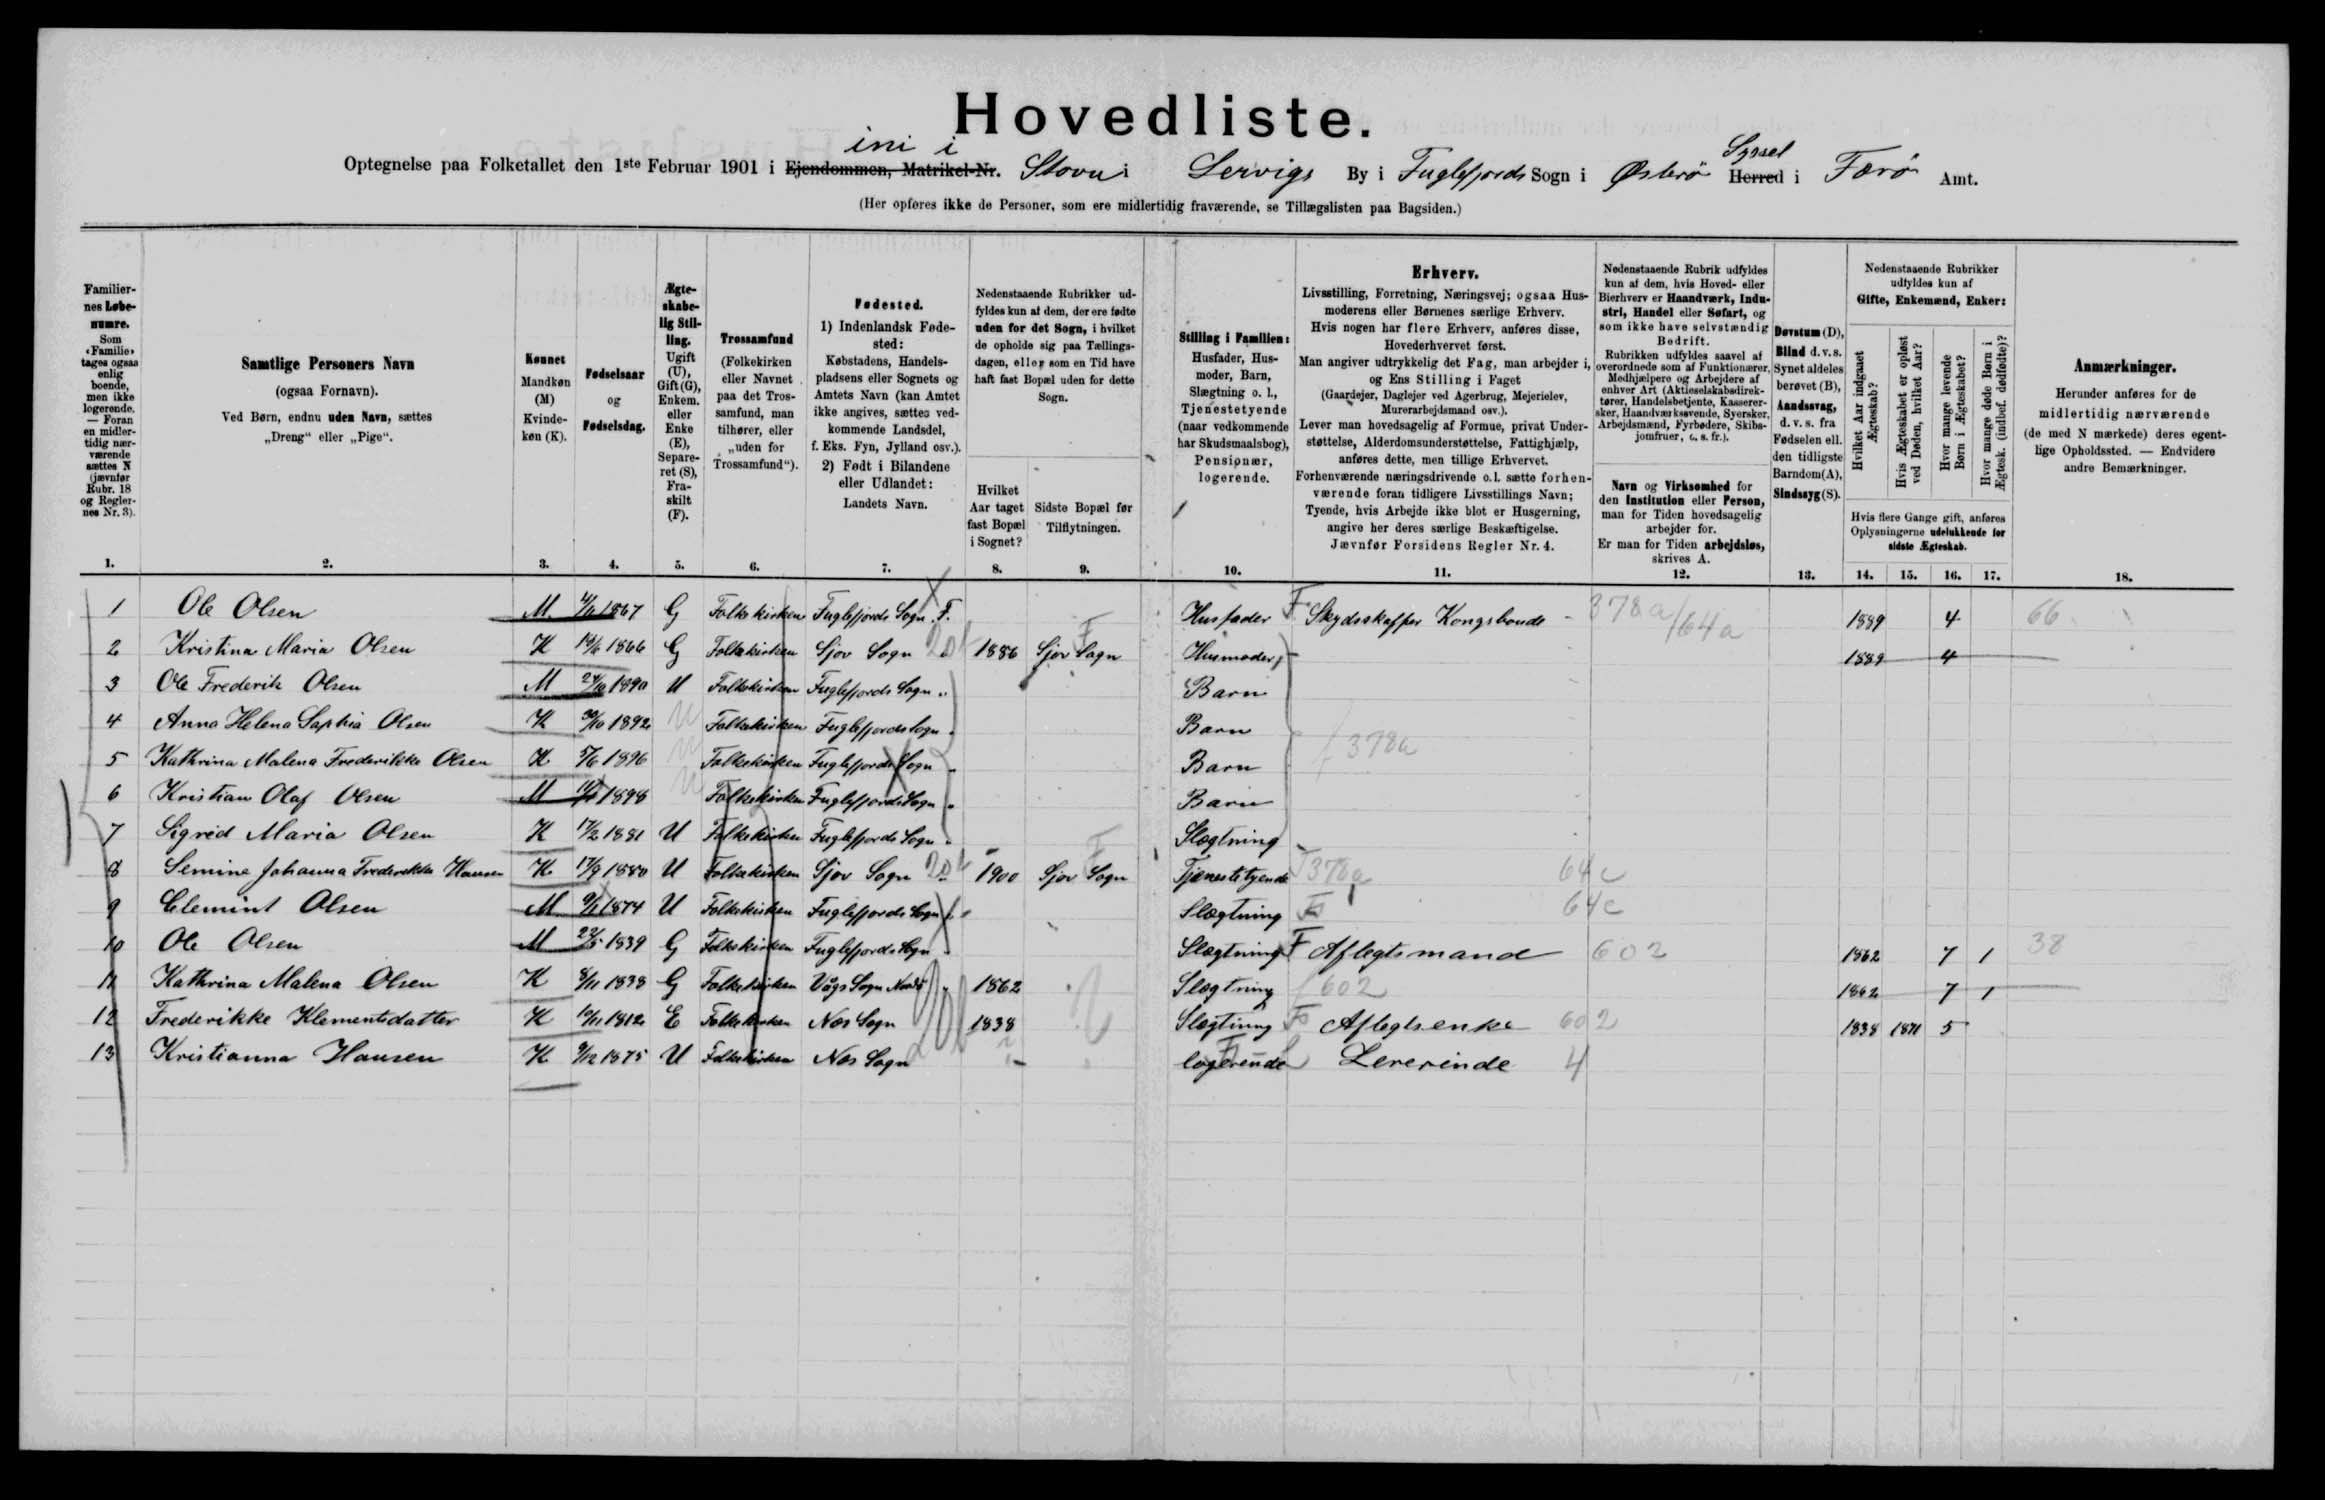 Hovedliste.
ini i
Optegnelse paa Folketallet den 1ste Februar 1901 i Ejendommen, Matrikel-Nr. Stovu i Lervigs By i Fuglefjords Sogn i Østerø Herred i Færø Amt.
Syssel
(Her opføres ikke de Personer, som ere midlertidig fraværende, se Tillægslisten paa Bagsiden.)
Familiernes Løbenumre. Som «Familie» tages ogsaa enlig boende, men ikke logerende. — Foran en midlertidig nærværende sættes N (jævnfør Rubr. 18 og Reglernes Nr. 3).
Samtlige Personers Navn
(ogsaa Fornavn).
Ved Børn, endnu uden Navn, sættes
„Dreng“ eller „Pige“.
Kønnet
Mandkøn (M) Kvindekøn (K).
Fødselsaar og Fødselsdag.
Ægteskabelig Stilling. Ugift (U), Gift (G), Enkem. eller Enke (E), Separeret (S), Fraskilt (F).
Trossamfund (Folkekirken eller Navnet paa det Trossamfund, man tilhører, eller „uden for Trossamfund“).
Fødested.
1) Indenlandsk Fødested: Købstadens, Handelspladsens eller Sognets og Amtets Navn (kan Amtet ikke angives, sættes vedkommende Landsdel, f. Eks. Fyn, Jylland osv.).
2) Født i Bilandene eller Udlandet: Landets Navn.
Nedenstaaende Rubrikker udfyldes kun af dem, der ere fødte uden for det Sogn, i hvilket de opholde sig paa Tællingsdagen, eller som en Tid have haft fast Bopæl uden for dette Sogn.
Hvilket Aar taget fast Bopæl i Sognet?
Sidste Bopæl før Tilflytningen.
Stilling i Familien: Husfader, Husmoder, Barn, Slægtning o. l., Tjenestetyende (naar vedkommende har Skudsmaalsbog), Pensionær, logerende.
Erhverv.
Livsstilling, Forretning, Næringsvej; ogsaa Husmoderens eller Børnenes særlige Erhverv.
Hvis nogen har flere Erhverv, anføres disse, Hovederhvervet først.
Man angiver udtrykkelig det Fag, man arbejder i, og Ens Stilling i Faget
(Gaardejer, Daglejer ved Agerbrug, Mejerielev, Murerarbejdsmand osv.).
Lever man hovedsagelig af Formue, privat Understøttelse, Alderdomsunderstøttelse, Fattighjælp, anføres dette, men tillige Erhvervet.
Forhenværende næringsdrivende o. l. sætte forhenværende foran tidligere Livsstillings Navn; Tyende, hvis Arbejde ikke blot er Husgerning, angive her deres særlige Beskæftigelse.
Jævnfør Forsidens Regler Nr. 4.
Nedenstaaende Rubrik udfyldes kun af dem, hvis Hoved- eller Bierhverv er Haandværk, Industri, Handel eller Søfart, og som ikke have selvstændig Bedrift.
Rubrikken udfyldes saavel af overordnede som af Funktionærer, Medhjælpere og Arbejdere af enhver Art (Aktieselskabsdirektører, Handelsbetjente, Kasserersker, Haandværkssvende, Syersker, Arbejdsmænd, Fyrbødere, Skibsjomfruer, o. s. fr.).
Navn og Virksomhed for den Institution eller Person, man for Tiden hovedsagelig arbejder for.
Er man for Tiden arbejdsløs, skrives A.
Døvstum (D), Blind d. v. s. Synet aldeles berøvet (B), Aandssvag, d. v. s. fra Fødselen ell. den tidligste Barndom (A), Sindssyg (S).
Nedenstaaende Rubrikker udfyldes kun af Gifte, Enkemænd, Enker:
Hvilket Aar indgaaet Ægteskab?
Hvis Ægteskabet er opløst ved Døden, hvilket Aar?
Hvor mange levende Børn i Ægteskabet?
Hvor mange døde Børn i Ægtesk. (indbef. dødfødte)?
Hvis flere Gange gift, anføres Oplysningerne udelukkende for sidste Ægteskab.
Anmærkninger.
Herunder anføres for de midlertidig nærværende (de med N mærkede) deres egentlige Opholdssted. — Endvidere andre Bemærkninger.
1. 2. 3. 4. 5. 6. 7. 8. 9. 10. 11. 12. 13. 14. 15. 16. 17. 18.
1 Ole Olsen M 1867 G Folkekirken Fuglefjords Sogn F. Husfader F Skydsskaffer Kongsbonde 378a/64a 1889 4 66
2 Kristina Maria Olsen K 1866 G Folkekirken Sjov Sogn " 1886 Sjov Sogn Husmoder 1889 4
3 Ole Frederik Olsen M 1890 U Folkekirken Fuglefjords Sogn " Barn
4 Anna Helena Sophia Olsen K 30/10 1892 U Folkekirken Fuglefjords Sogn " Barn
5 Kathrina Malena Frederikke Olsen K 5/6 1896 U Folkekirken Fuglefjords Sogn " Barn f 378a
6 Kristian Olaf Olsen M 1898 U Folkekirken Fuglefjords Sogn " Barn
7 Sigrid Maria Olsen K 17/2 1881 U Folkekirken Fuglefjords Sogn " Slægtning
8 Semine Johanna Frederikke Hansen K 17/9 1880 U Folkekirken Sjov Sogn " 1900 Sjov Sogn Tjenestetyende 378a 64c
9 Clemint Olsen M 1874 U Folkekirken Fuglefjords Sogn " Slægtning 64c
10 Ole Olsen M 22/5 1839 G Folkekirken Fuglefjords Sogn " Slægtning F Aflegtsmand 602 1862 7 1 38
11 Kathrina Malena Olsen K 8/11 1838 G Folkekirken Vågs Sogn Norderø " 1862 Slægtning f 602 1862 7 1
12 Frederikke Klementsdatter K 10/11 1812 E Folkekirken Nes Sogn 1838 Slægtning Aflegtsenke 602 1838 1871 5
13 Kristianna Hansen K 9/12 1875 U Folkekirken Nes Sogn " logerende Lererinde 4